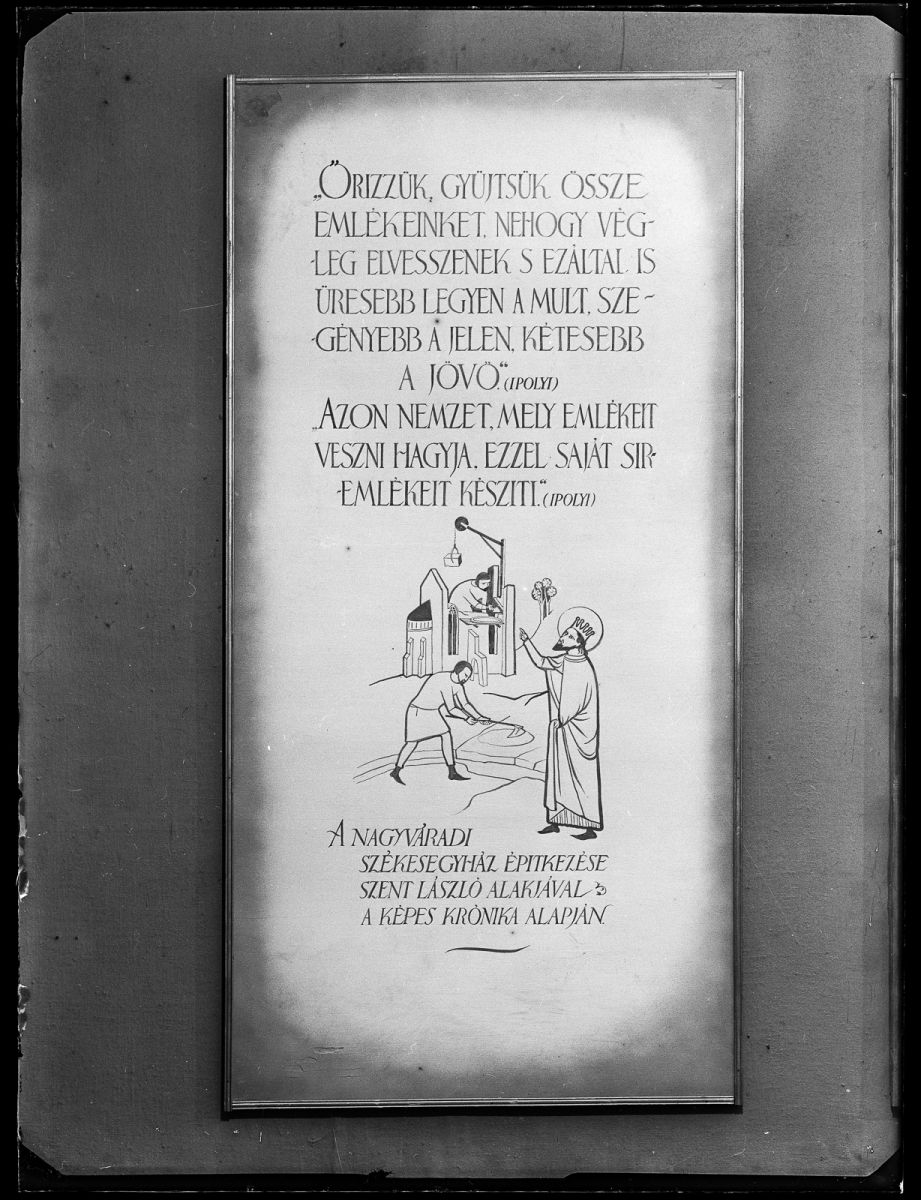 „ŐRIZZÜK, GYÜJTSÜK ÖSSZE
EMLÉKEINKET, NEHOGY VÉG-
-LEG ELVESSZENEK S EZÁLTAL IS
ÜRESEBB LEGYEN A MULT, SZE-
-GÉNYEBB A JELEN, KÉTESEBB
A JÖVŐ.“ (IPOLYI)
„AZON NEMZET, MELY EMLÉKEIT
VESZNI HAGYJA, EZZEL SAJÁT SIR-
-EMLÉKEIT KÉSZITI.“ (IPOLYI)
A NAGYVÁRADI
SZÉKESEGYHÁZ ÉPITKEZÉSE
SZENT LÁSZLÓ ALAKJÁVAL
A KÉPES KRÓNIKA ALAPJÁN.